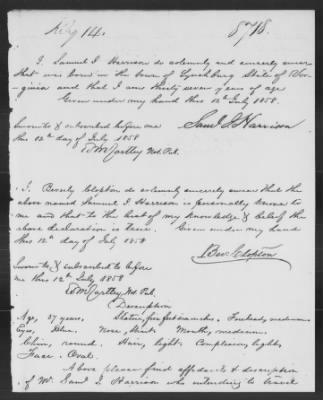 July 14. 8718.
I, Samuel J Harrison do solemnly and sincerely swear
that was born in the town of Lynchburg State of Vir-
ginia and that I am thirty seven years of age
Given under my hand this 12th July 1858.
Saml J Harrison
Sworn to & subscribed before me
this 12th day of July 1858
Not. Pub.
I, Beverly Clopton do solemnly sincerely swear that the
above named Samuel J Harrison is personally known to
me and that to the best of my knowledge & belief the
above declaration is true. Given under my hand
this 12th day of July 1858
Bev. Clopton
Sworn to & subscribed to before
me this 12th July 1858
Not. Pub.
Description
Age, 37 years, Stature, five feet Forehead, medium
Eyes, Blue. Nose, Short Mouth, medium
Chin, round. Hair, light Complexion, light
Face. Oval.
Above please find affidavits & description
of Mr. Saml J Harrison who intending to travel